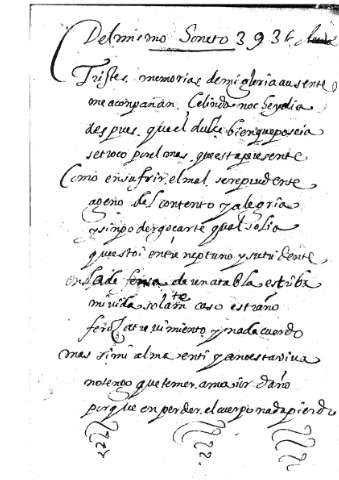 Del mismo Soneto 3936
Tristes memorias de mi gloria ausente
me aconpañan Celinda noche y dia
despues que el dulce bien que poseia
se troco por el mas questa presente
Como en sufrir el mal se repudente
ageno del contento y alegria
y sin poder goçarte qual solia
questoi entre neptuno y su tridente
en la de fensa de una tabla estriba
mi vida solamte caso estraño
feroz atrevimiento y nada cuerdo
mas si mi alma en ti ya no esta viva
no tengo que temer amaior daño
porque en perder el cuerpo nada pierdo